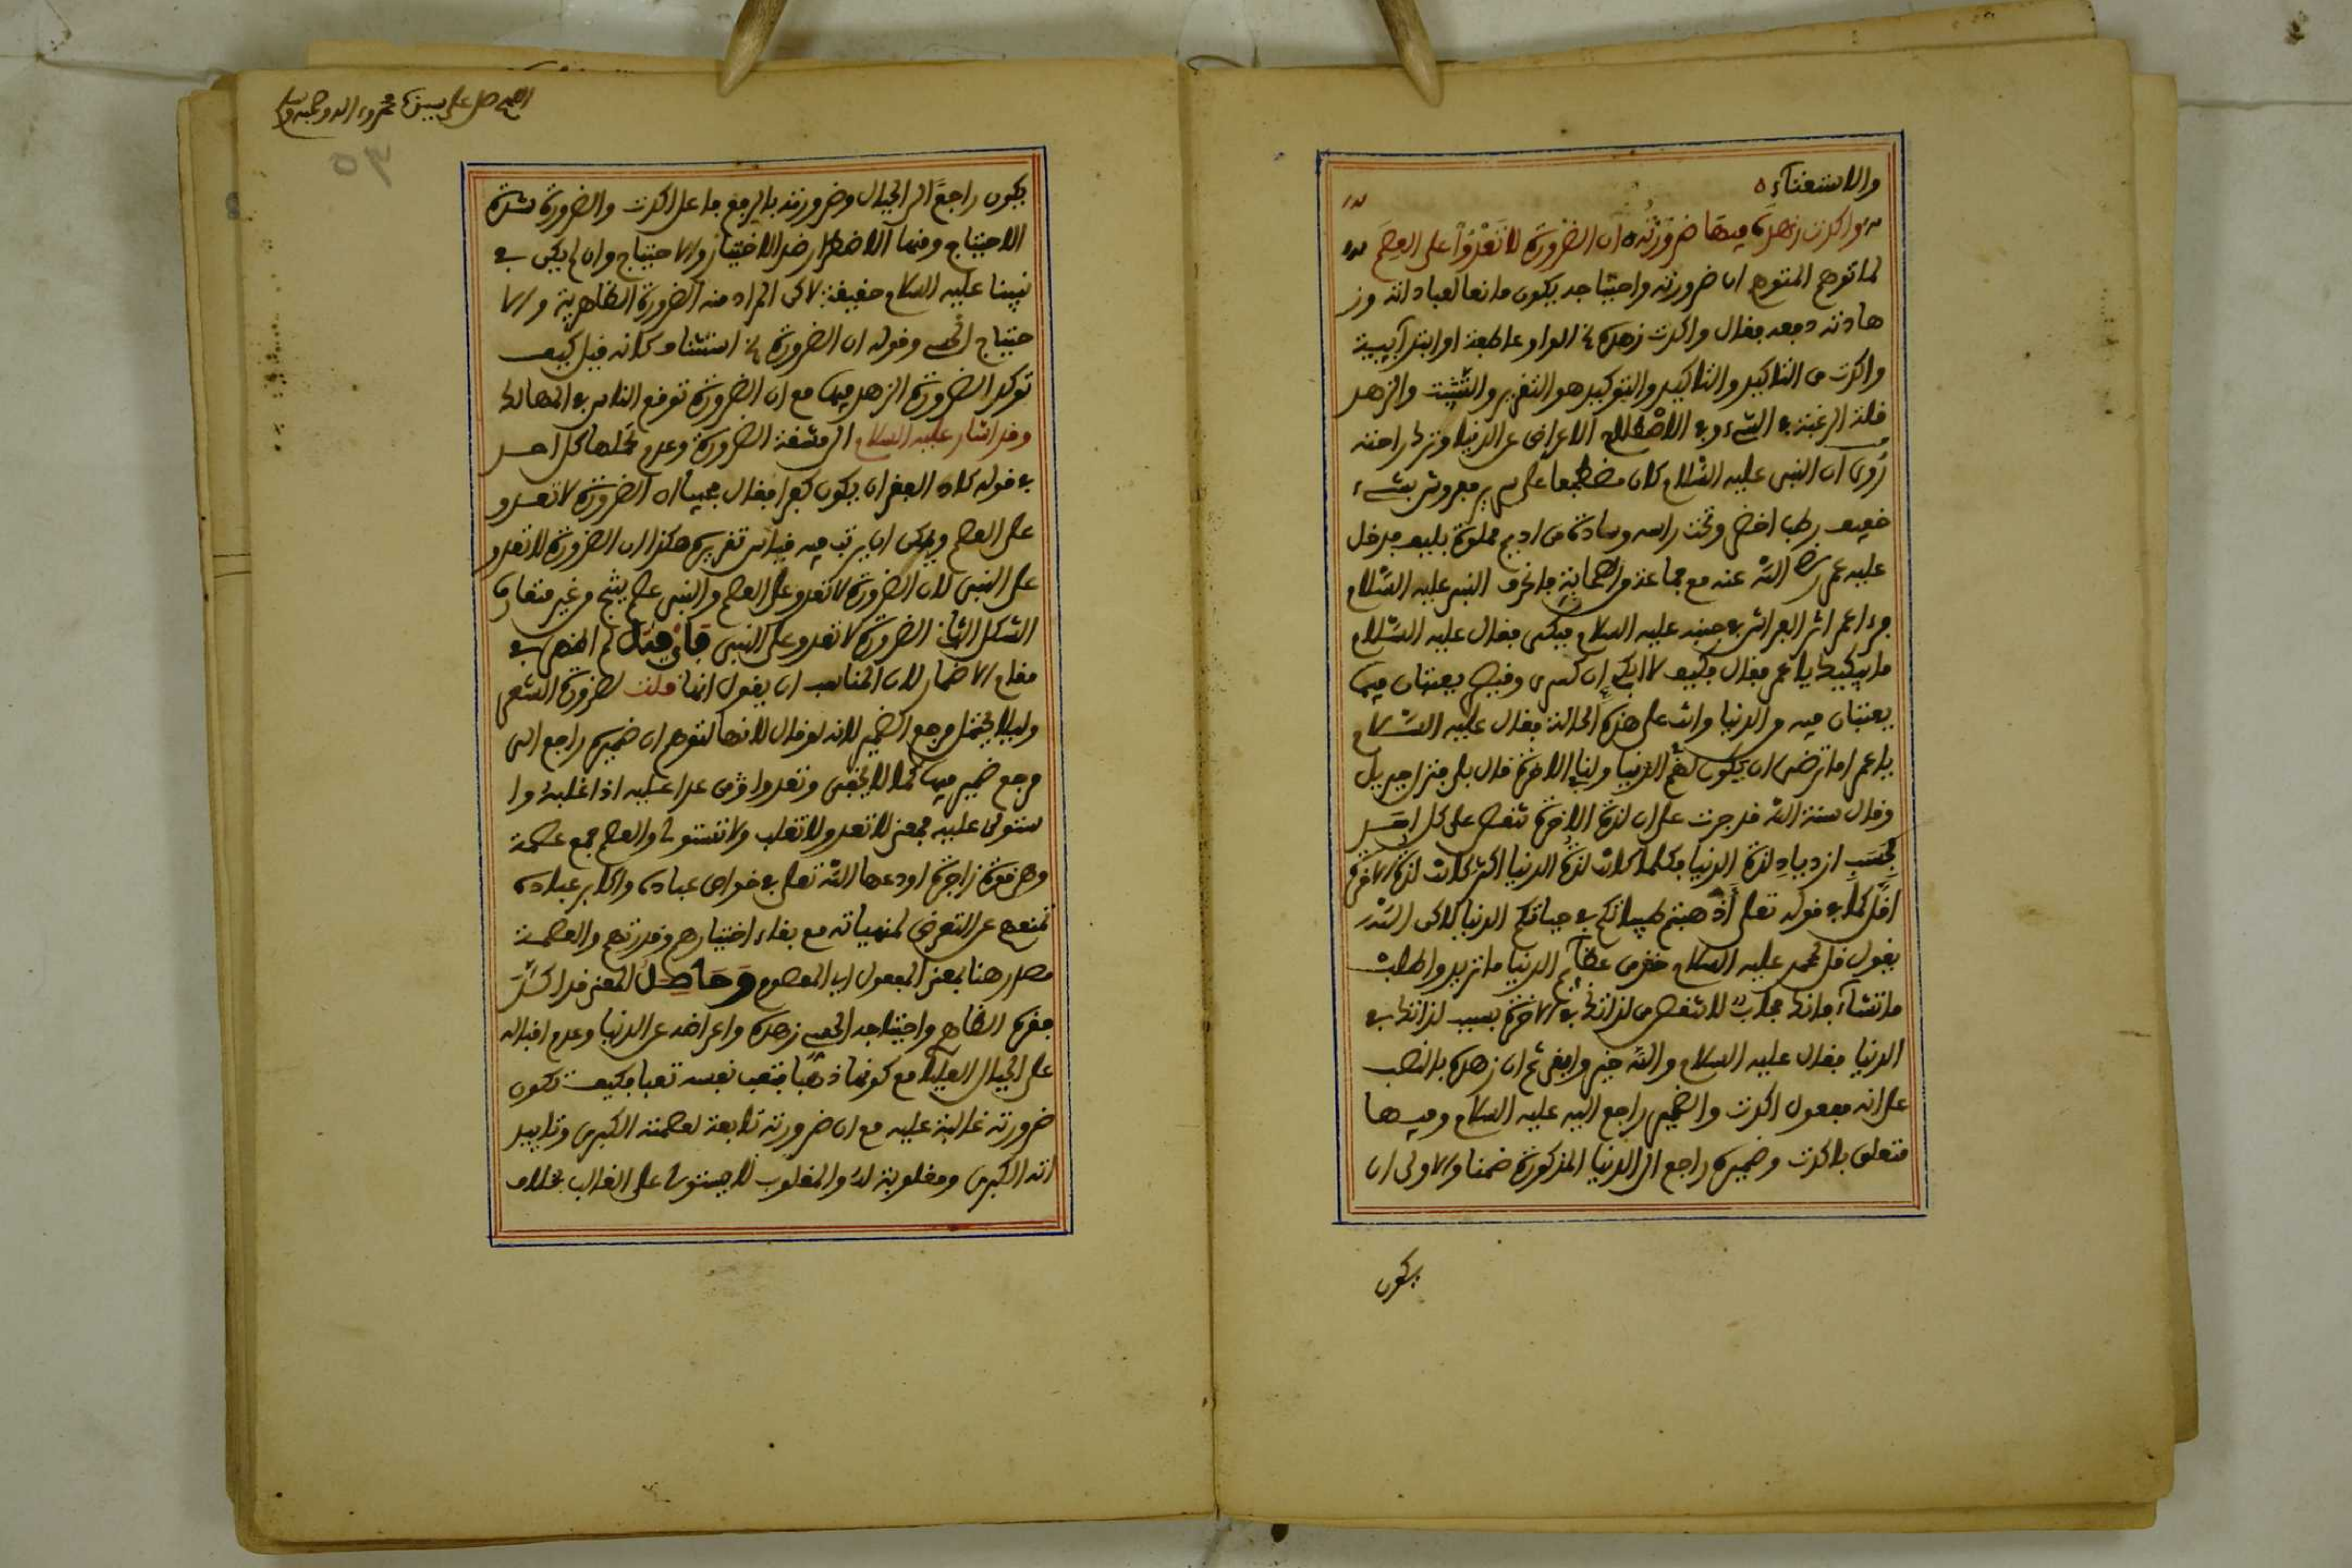 والاستغناء
واكدت زهده فيها ضرورته ان الضرورة لا تعدوا على العصم
لما توهم المتوهم ان ضرورته واحتياجه يكون مانعا لعباداته وز
هادته دفعه فقال واكدت زهده الواو عاطفة او ابتدآيية
واكدت من التاكيد والتاكيد والتوكيد هو التقرير والتثبيت والزهد
قلة الرغبة في الشيء وفي الاصطلاح الاعراض عن الدنيا وترك راحته
رُوِي ان النبي عليه السّلام كان مضطجعا على سرير مفروش بشيء
خفيف رطب اخضر وتحت راسه وسادة من اديم مملوة بليف فدخل
عليه عمر رضي الله عنه مع جماعة من الصحابة فانحرف النبي عليه السّلام
فرءا عمر اثر الفراش في جنبه عليه السلام فبكى فقال عليه السّلام
ما يبكيك يا عمر فقال فكيف لا ابكي ان كسرى وقيصر يعيثان فيما
يعيثان فيه من الدنيا وانت على هذه الحالة فقال عليه السّلام
يا عمر اما ترضى ان يكون لهم الدنيا ولنا الاخرة قال بلى فنزل جبريل
وقال سنة الله قد جرت على ان لذة الاخرة تنقص على كل احد
بحَسَبِ ازدياد لذة الدنيا فكلما كانت لذة الدنيا اكثر كانت لذة الاخرة
اقلّ كما في قوله تعلى أَذْهبتم طيباتكم في حياتكم الدنيا لاكن الله
يقول قل لمحمد عليه السلام خذ من الدنيا ما تريد واطلب
ما تشآء فانك لا تنقص من لذاتك في الاخرة بسبب لذاتك في
الدنيا فقال عليه السلام والله خير وابقى ثم ان زهده بالنصب
على انه مفعول اكدت والضمير راجع اليه عليه السلام وفيها
متعلق باكدت وضميره راجع الى الدنيا المذكورة ضمنا والاولى ان
يكون
اللهم صل على سيدنا محمد وءاله وصحبه وسلم
يكون راجعًا الى الجبال وضرورته بالرفع فاعل اكدت والضرورة شدة
الاحتياج ومنها الاضطرار ضد الاختيار والاحتياج وان لم يكن في
نبينا عليه السلام حقيقة لاكن المراد منه الضرورة الظاهرية والا
حتياج الحسي وقوله ان الضرورة استيناف كانه قيل كيف
توكد الضرورة الزهد فيها مع ان الضرورة توقع الناس في المهالك
وقد اشار عليه السلام الى مشقة الضرورة وعدم تحملها كل احد
في قوله كاد الفقر ان يكون كفرا فقال مجيبا ان الضرورة لا تعدو
على العصم ويمكن ان يرتب فيه قياس تقريره هكذا ان الضرورة لا تعدو
على النبي لان الضرورة لا تعدو على العصم والنبي عصم ينتج من غير متعارف
الشكل الثاني الضرورة لا تعدو على النبي فَإن قيل لم اظهر في
مقام الاضمار لان المناسب ان يقول انها قلت لضرورة الشعر
وليلا يختل مرجع الضمير لانه لو قال لانها لتوهم ان ضميره راجع الى
مرجع ضمير فيها كما لا يخفى وتعدوا من عدا عليه اذا غلبه وا
ستولى عليه فمعنى لا تعدو لا تغلب ولا تستولى والعصم جمع عصمة
وهي قوة زاجرة اودعها الله تعلى في خواص عباده واكابر عباده
تمنعهم عن التعرض لمنهياته مع بقاء اختيارهم وقدرتهم والعصمة
مصدر هنا بمعنى المفعول اي المعصوم وَحَاصِلُ المعنى قد اكدت
فقره الظاهر واحتياجه الحسي زهده واعراضه عن الدنيا وعدم اقباله
على الجبال العلية مع كونها ذهبا فتعب نفسه تعبا فكيف تكون
ضرورته غالبة عليه مع ان ضرورته تابعة لعصمته الكبرى وتاييد
اته الكبرى ومغلوبة له والمغلوب لا يستولى على الغالب بخلاف